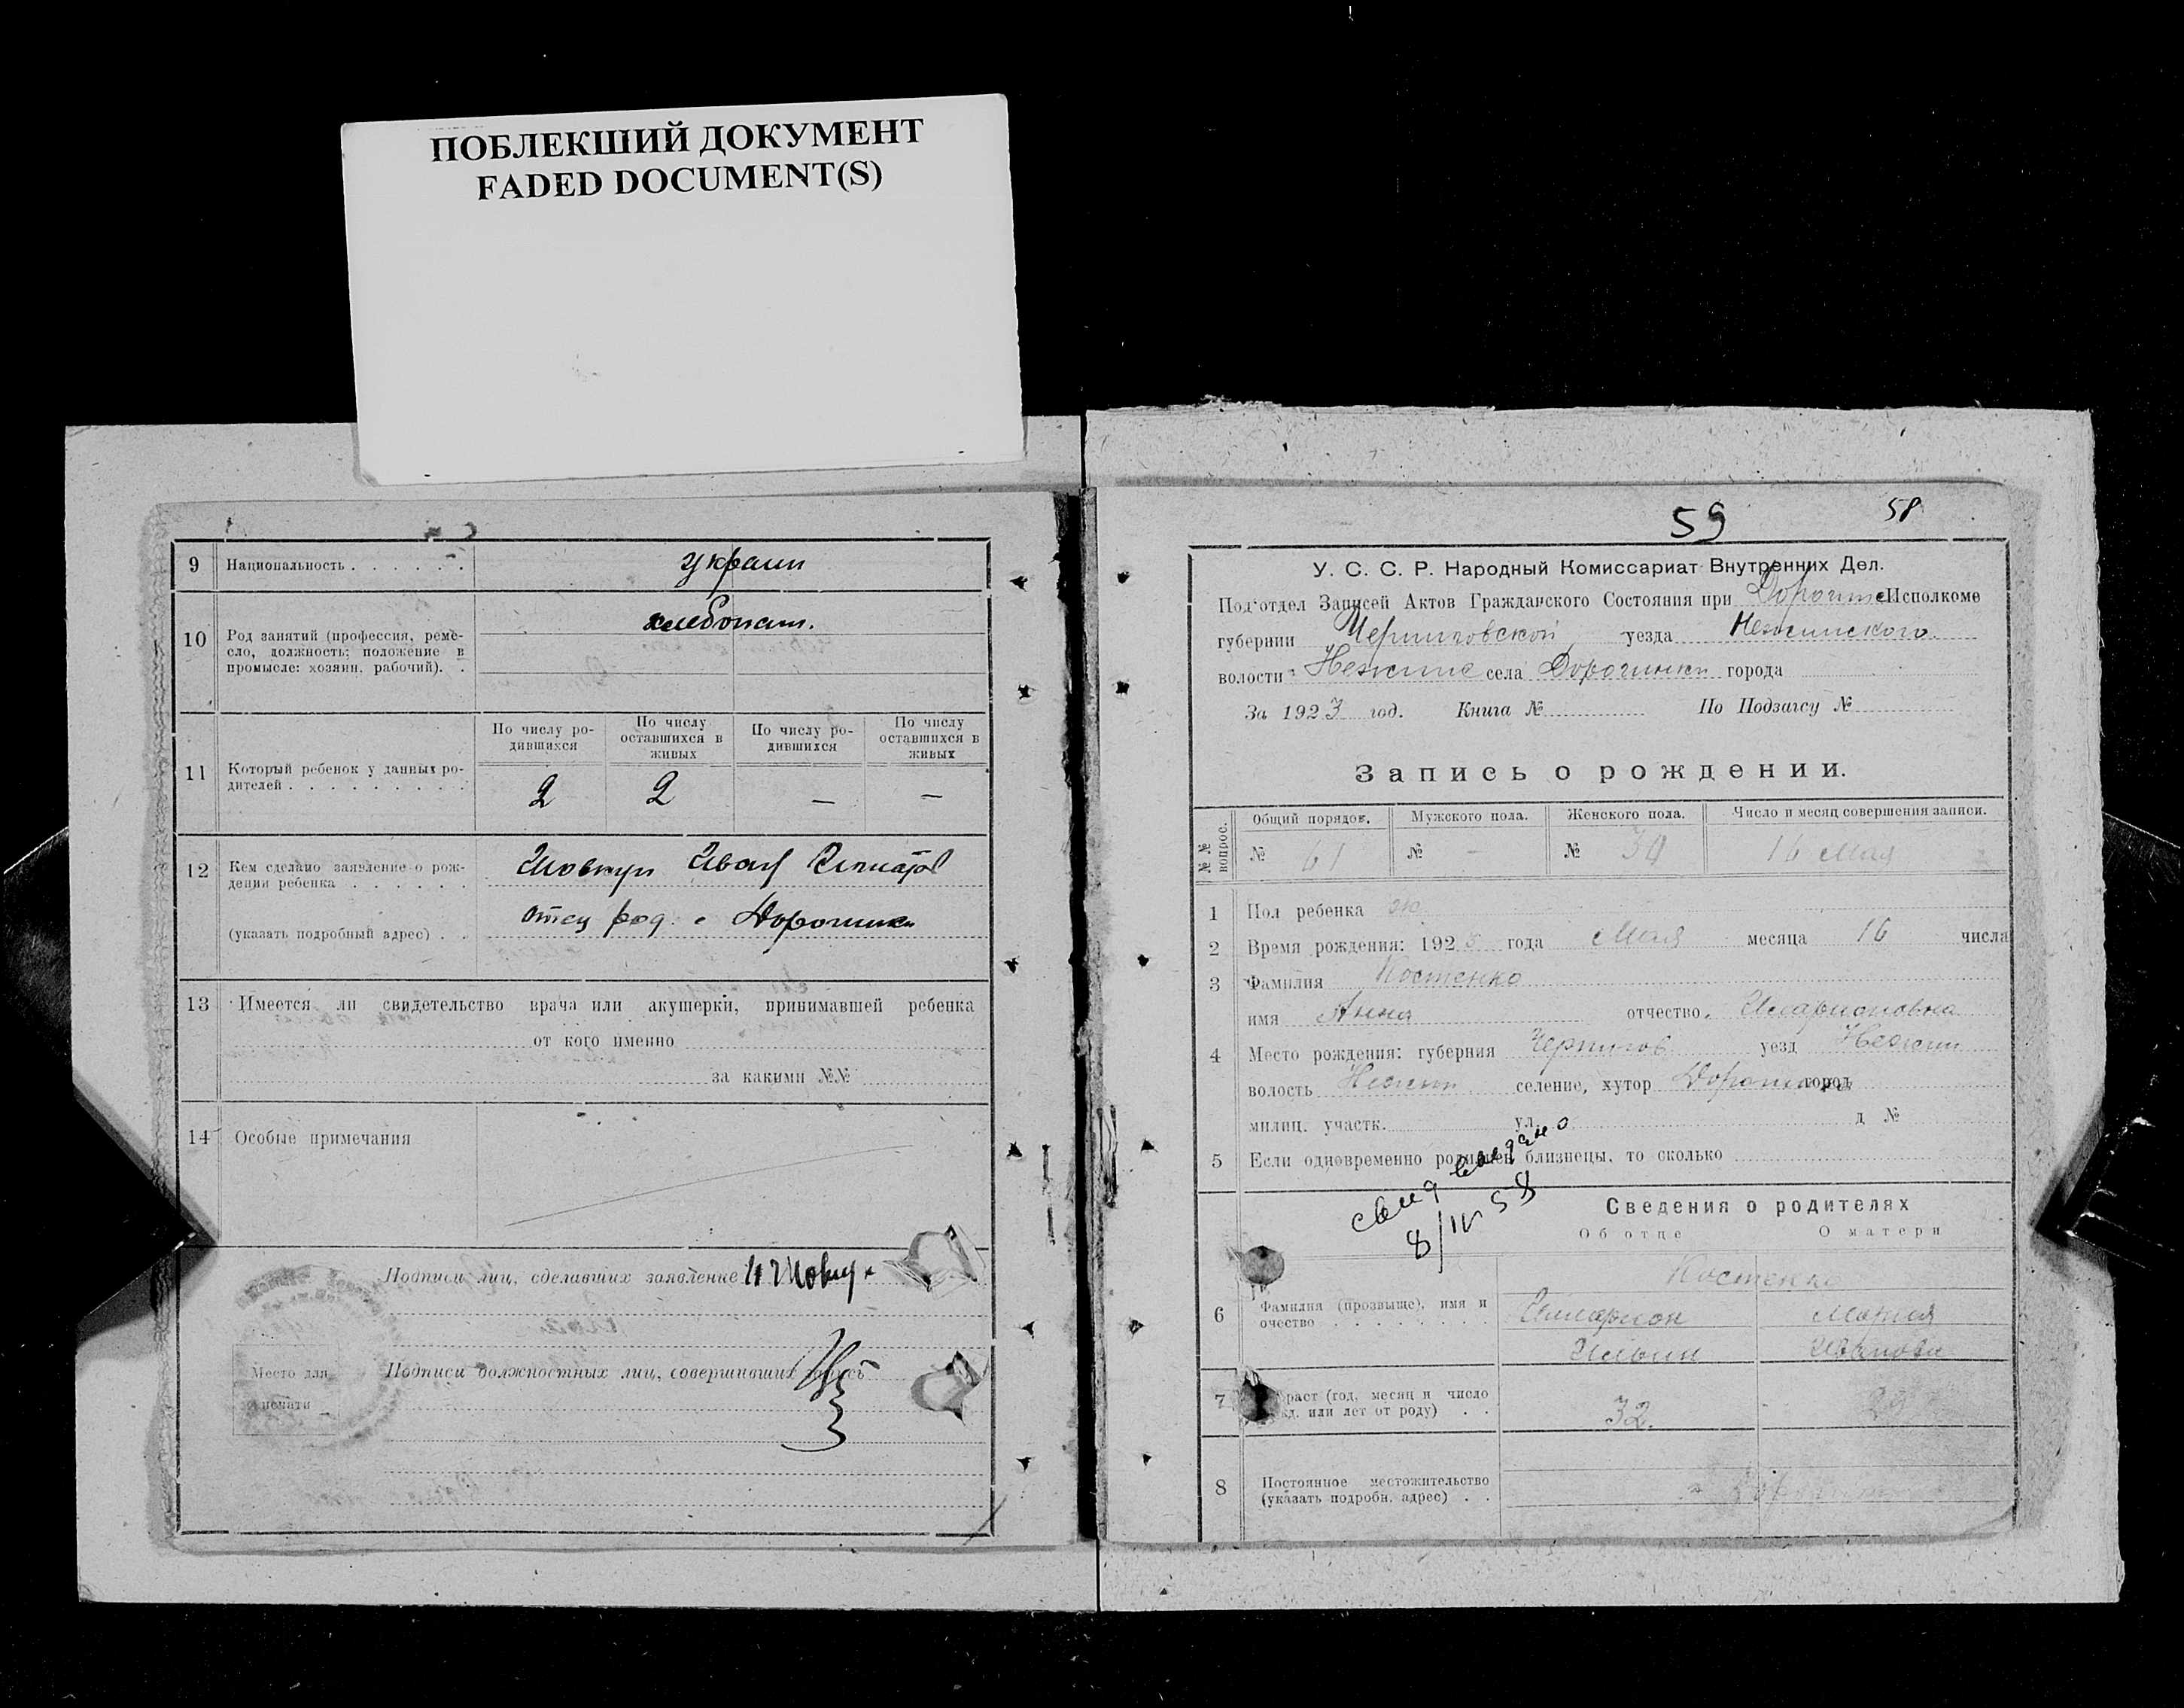 ПОБЛЕКШИЙ ДОКУМЕНТ
FADED DOCUMENT(S)
9 Национальность . . . . . . украин
10 Род занятий (профессия, реме-
сло, должность; положение в
промысле: хозяин, рабочий). . хлебопаш.
11 Который ребенок у данных ро-
дителей . . . . . . . . .
По числу ро-
дившихся
По числу
оставшихся в
живых
По числу ро-
дившихся
По числу
оставшихся в
живых
2 2 — —
12 Кем сделано заявление о рож-
дении ребенка . . . . . . Иван
(указать подробный адрес) . . отец
13 Имеется ли свидетельство врача или акушерки, принимавшей ребенка
от кого именно
за какими №№
14 Особые примечания
Подписи лиц, сделавших заявление
Место для
печати
Подписи должностных лиц, совершивших
59 58
У. С. С. Р. Народный Комиссариат Внутренних Дел.
Под'отдел Записей Актов Гражданского Состояния при Исполкоме
губернии Черниговской уезда Нежинского
волости села Дорогинки города
За 1923 год. Книга № По Подзагсу №
Запись о рождении.
№ № вопрос.
Общий порядок. Мужского пола. Женского пола. Число и месяц совершения записи.
№ 61 № - № 34 16 Мая
1 Пол ребенка ж
2 Время рождения: 1923 года Мая месяца 16 числа
3 Фамилия Костенко
имя Анна отчество Иларионовна
4 Место рождения: губерния Чернигов уезд Нежин
волость Нежин селение, хутор город
милиц. участк. ул. д №
5 Если одновременно родились близнецы, то сколько
свид выдано
8/IV 58
Сведения о родителях
Об отце О матери
6 Фамилия (прозвище), имя и
очество . . . . . . . .
Костенко
Иларион Мария
Ильин Иванов
7 Возраст (год, месяц и число
рожд. или лет от роду) . . 32.
8 Постоянное местожительство
(указать подробн. адрес) . .